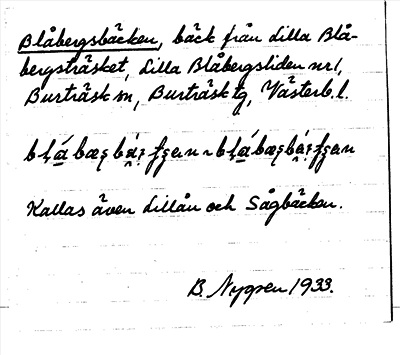 Blåbergsbäcken, bäck från Lilla Blå-
bergsträsket, Lilla Blåbergsliden nr 1,
Burträsk sn, Burträsk tg, Västerb. l.
Kallas även Lillån och Sågbäcken.
B. Nygren 1933.